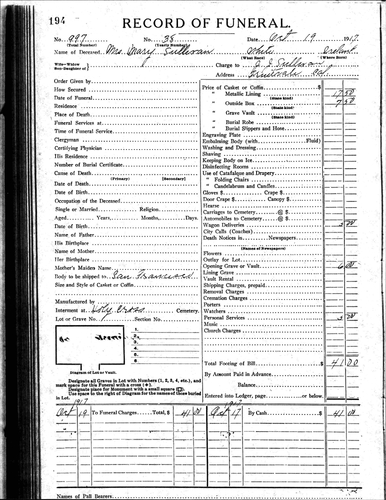 194
RECORD OF FUNERAL.
No. 297 No. 38 Date, Oct 19 1917
(Total Number) (Yearly Number)
Name of Deceased Mrs. Mary Sullivan White
Wife-Widow
Son-Daughter of
Charge to J. J. Sullivan
Address Fruitvale Cal.
Order Given by
How Secured
Date of Funeral
Residence
Place of Death
Funeral Services at
Time of Funeral Service
Clergyman
Certifying Physician
His Residence
Number of Burial Certificate
Cause of Death
(Primary) (Secondary)
Date of Death
Date of Birth
Occupation of the Deceased
Single or Married Religion
Aged Years, Months, Days.
Date of Birth
Name of Father
His Birthplace
Name of Mother
Her Birthplace
Mother's Maiden Name
Body to be shipped to San Francisco
Size and Style of Casket or Coffin
Manufactured by
Interment at Holy Cross Cemetery.
Lot or Grave No. Section No.
Diagram of Lot or Vault.
Designate all Graves in Lot with Numbers (1, 2, 3, 4, etc.), and
mark space for this Funeral with a cross (+).
Designate place for Monument with a small square (□).
Use space in the right of Diagram for the names of those buried
in Lot.
Price of Casket or Coffin
" Metallic Lining 17.50
(State kind)
" Outside Box 7.50
(State kind)
" Grave Vault
(State kind)
" Burial Robe
" Burial Slippers and Hose
Engraving Plate
Embalming Body (with Fluid)
Washing and Dressing
Shaving
Keeping Body on Ice
Disinfecting Rooms
Use of Catafalque and Drapery
" Folding Chairs
" Candelabrum and Candles
Gloves $ Crape $
Door Crape $ Canopy $
Hearse
Carriages to Cemetery @ $
Automobiles to Cemetery @ $
Wagon Deliveries 5.00
City Calls (Coaches)
Death Notices in Newspapers
(Names of Newspapers)
Flowers
Outlay for Lot
Opening Grave or Vault 6.00
Lining Grave
Vault Rental
Shipping Charges, prepaid
Removal Charges
Cremation Charges
Porters
Watchers
Personal Services 5.00
Music
Church Charges
Total Footing of Bill $ 41.00
By Amount Paid in Advance
Balance
Entered into Ledger, page or below.
1917
Oct 19 To Funeral Charges Total, $ 41 00 Oct 19 By Cash $ 41 00
Names of Pall Bearers